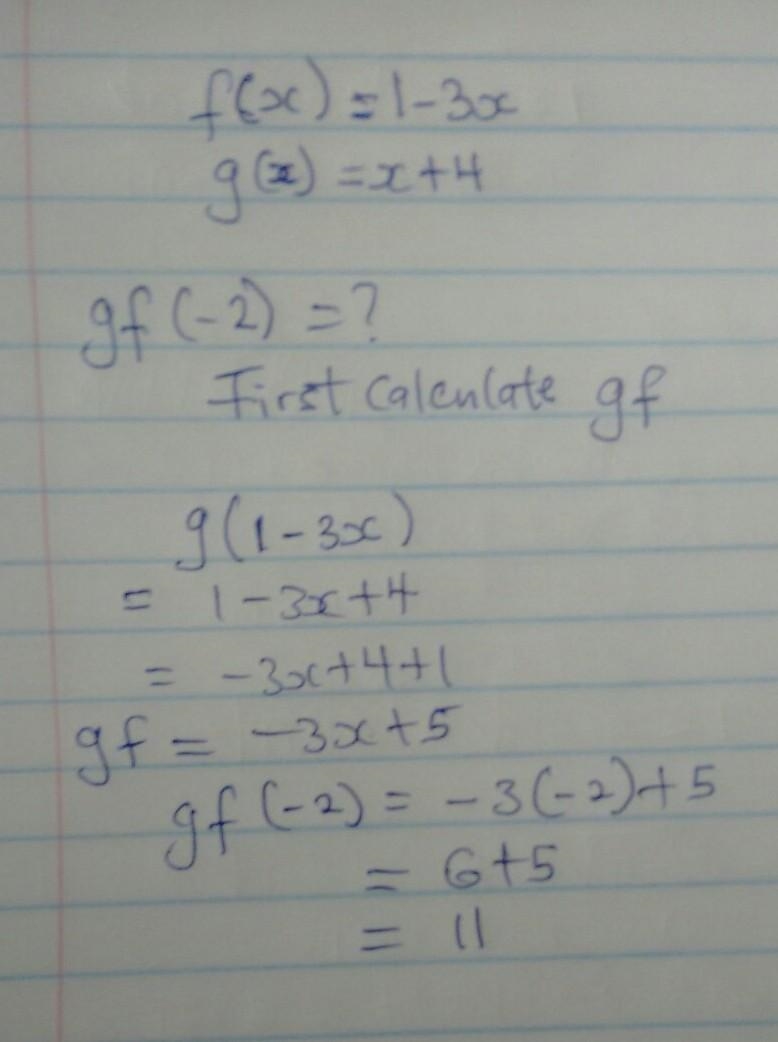 f(x) = 1-3x
g(x) = x+4
gf(-2) = ?
First Calculate gf
g(1-3x)
= 1-3x+4
= -3x+4+1
gf = -3x+5
gf(-2) = -3(-2)+5
= 6+5
= 11